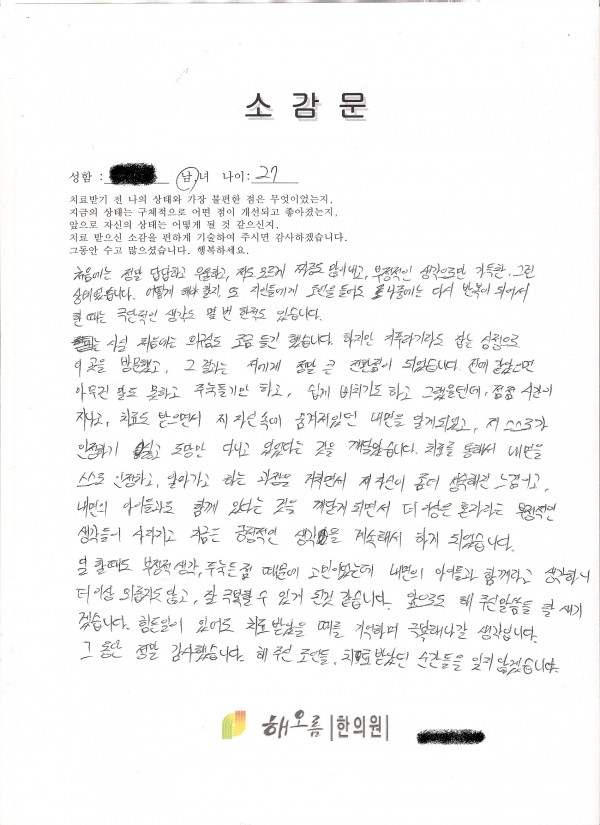 소 감 문
성함 : 남,녀 나이: 27
치료받기 전 나의 상태와 가장 불편한 점은 무엇이었는지.
지금의 상태는 구체적으로 어떤 점이 개선되고 좋아졌는지.
앞으로 자신의 상태는 어떻게 될 것 같으신지.
치료 받으신 소감을 편하게 기술하여 주시면 감사하겠습니다.
그동안 수고 많으셨습니다. 행복하세요.
처음에는 정말 답답하고 우울하고, 저도 모르게 짜증도 많이내고, 부정적인 생각으로만 가득한, 그런
상태였습니다. 어떻게 해야 할지, 또 지인들에게 조언을 들어도 나중에는 다시 반복이 되어서
한 때는 극단적인 생각도 몇 번 한적도 있습니다.
사실 처음에는 의심도 조금 들긴 했습니다. 하지만 지푸라기라도 잡는 심정으로
이 곳을 방문했고, 그 결과는 저에게 정말 큰 전환점이 되었습니다. 전에 같았으면
아무런 말도 못하고 주눅들기만 하고, 쉽게 삐치기도 하고 그랬을텐데, 점점 시간이
지나고, 치료도 받으면서 제 자신 속에 숨겨져있던 내면을 알게되었고, 저 스스로가
인정하기 싫고 도망만 다니고 있었다는 것을 깨달았습니다. 치료를 통해서 내면을
스스로 인정하고, 알아가고 하는 과정을 겪으면서 제 자신이 좀더 성숙해진 느낌이고,
내면의 아이들과도 함께 있다는 것을 깨닫게 되면서 더 이상은 혼자라는 부정적인
생각들이 사라지고 지금은 긍정적인 생각을 계속해서 하게 되었습니다.
일 할때도 부정적 생각, 주눅든 점 때문에 고민이었는데 내면의 아이들과 함께라고 생각하니
더이상 외롭지도 않고, 잘 극복할 수 있게 된것 같습니다. 앞으로도 해 주신말씀들 잘 새기
겠습니다. 힘든일이 있어도 치료 받았을 때를 기억하며 극복해나갈 생각입니다.
그 동안 정말 감사했습니다. 해 주신 조언들, 치료 받았던 순간들을 잊지 않겠습니다.
해오름 한의원